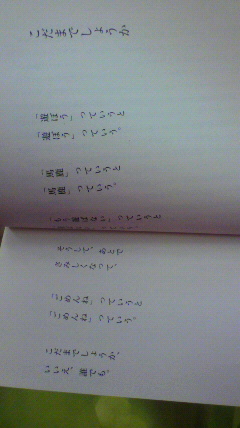 こだまでしょうか
「遊ぼう」っていうと
「遊ぼう」っていう。
「馬鹿」っていうと
「馬鹿」っていう。
「もう遊ばない」っていうと
そうして、あとで
さみしくなって、
「ごめんね」っていうと
「ごめんね」っていう。
こだまでしょうか、
いいえ、誰でも。